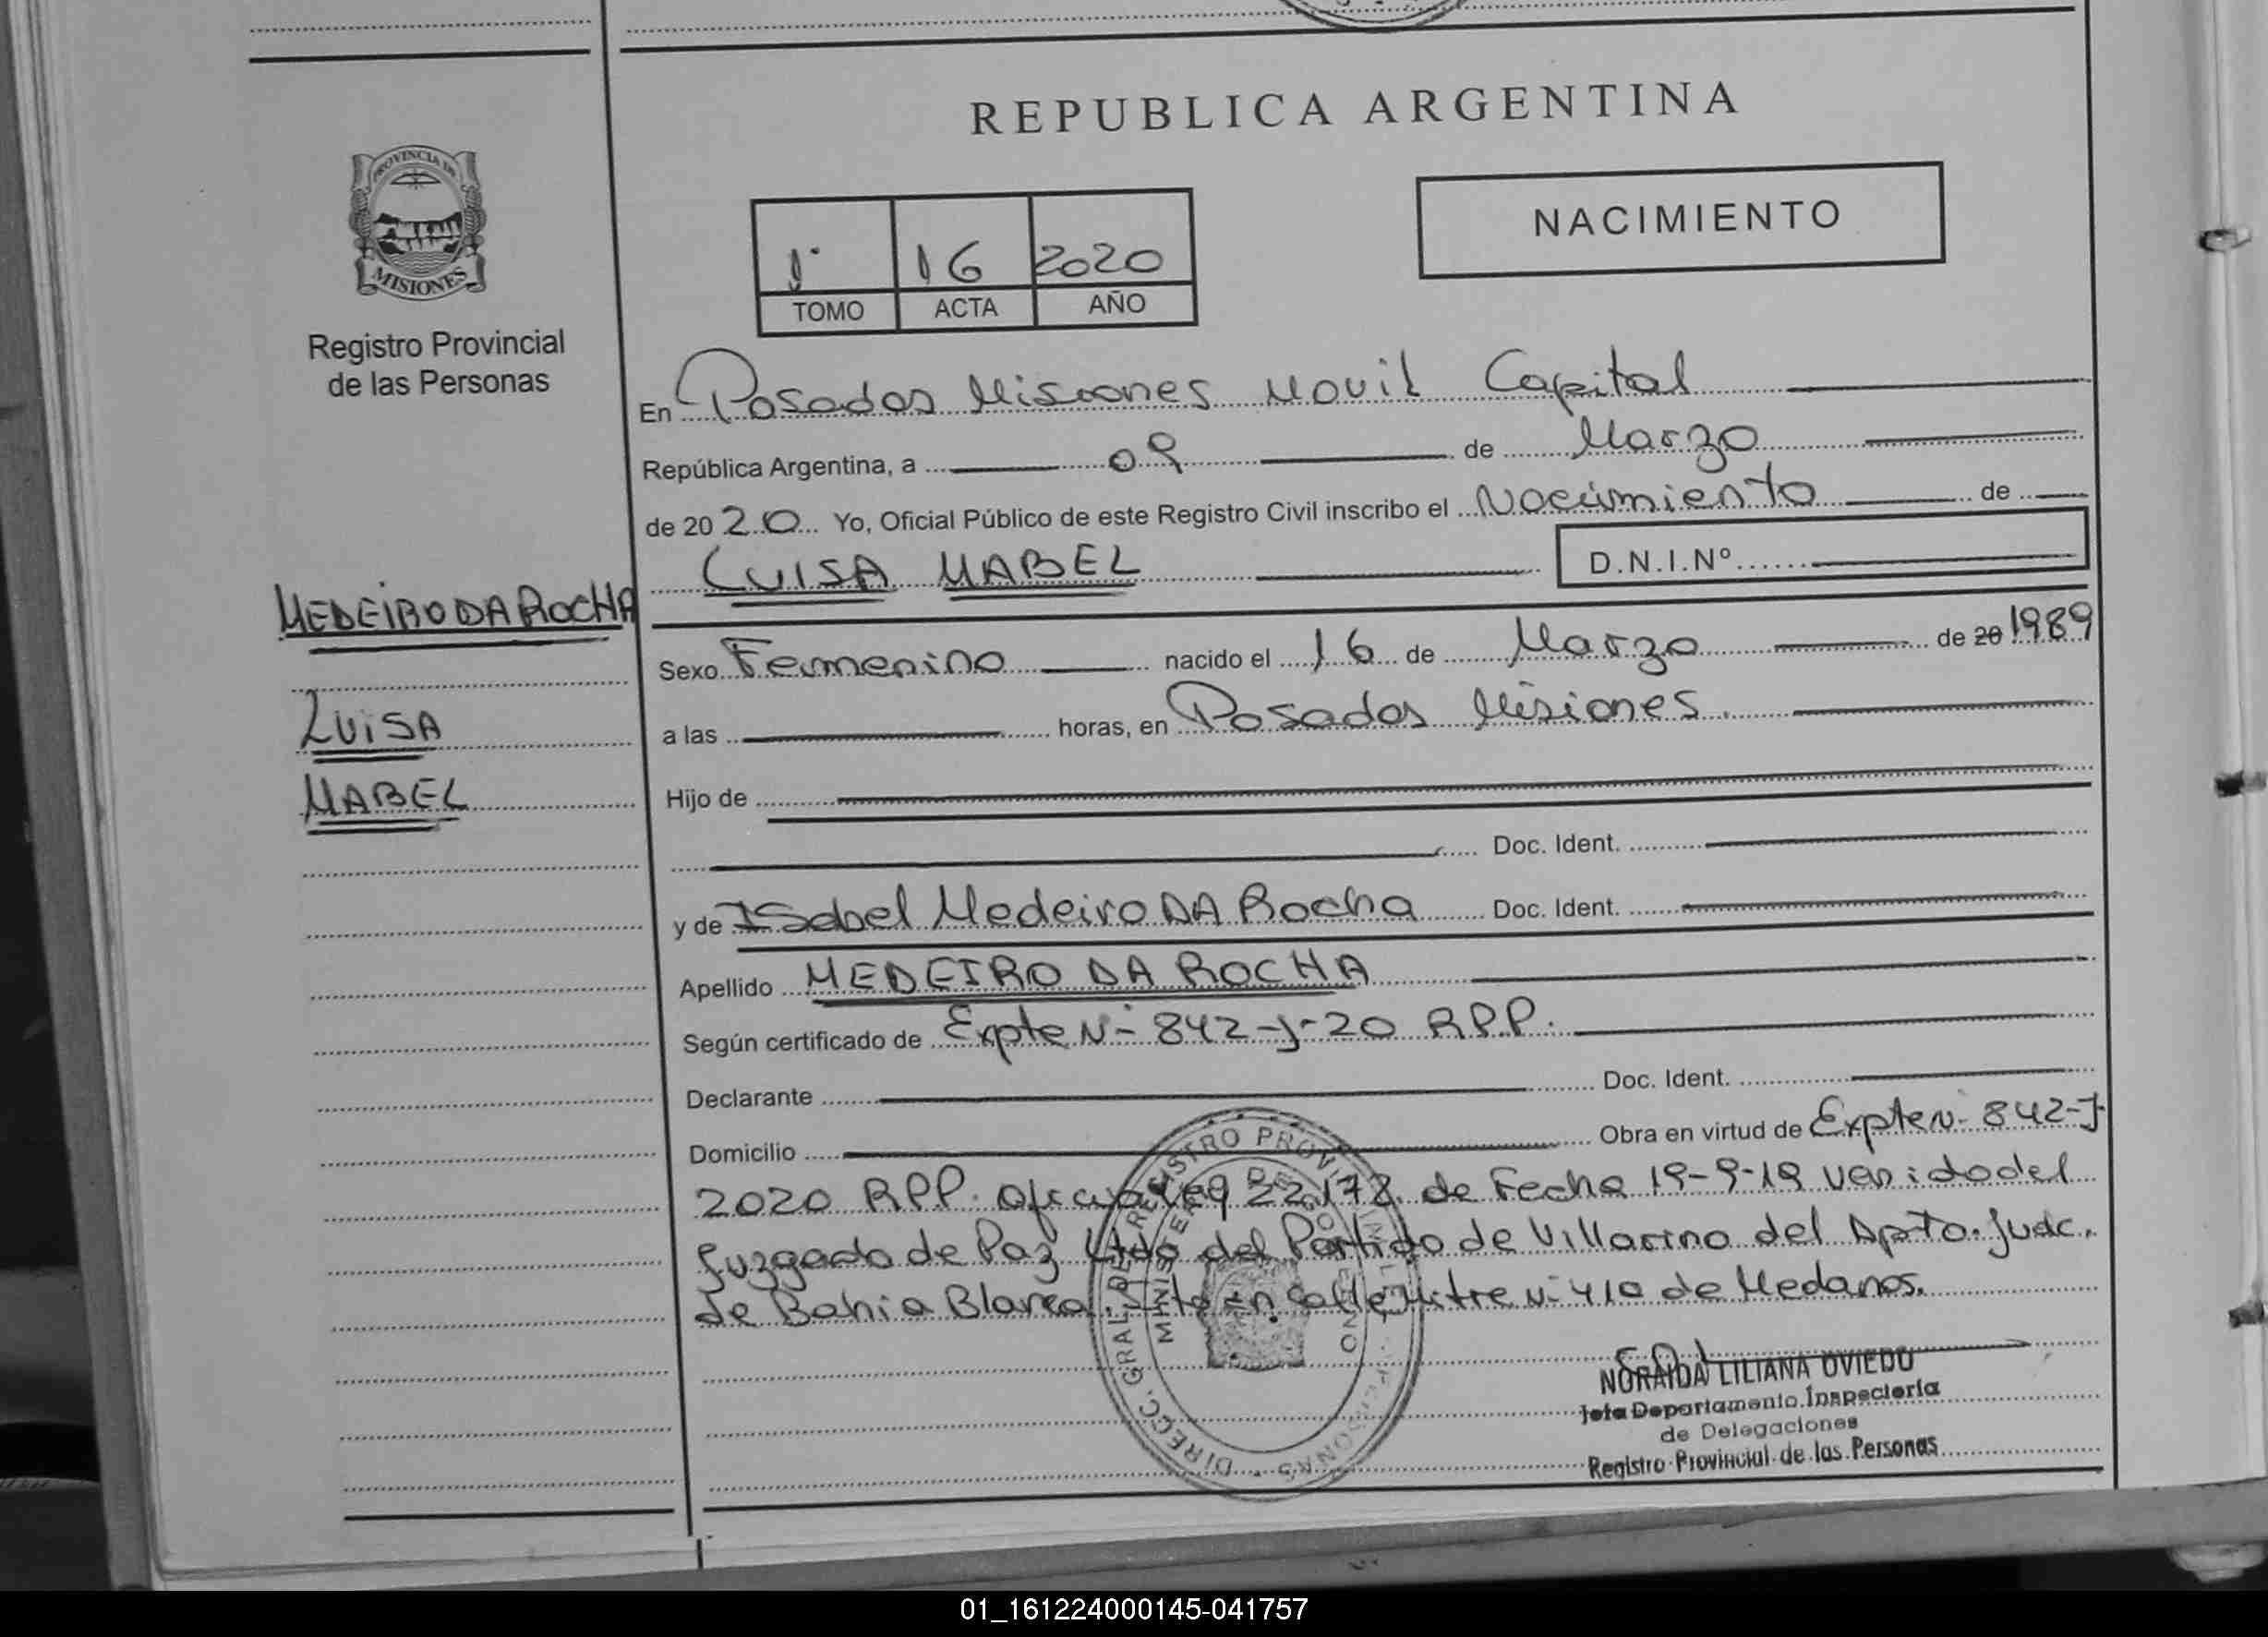 REPUBLICA ARGENTINA
PROVINCIA DE
MISIONES
Registro Provincial
de las Personas
NACIMIENTO
1° 16 2020
TOMO ACTA AÑO
En Posadas Misiones Movil Capital
República Argentina, a 09 de Marzo
de 2020 Yo, Oficial Público de este Registro Civil inscribo el Nacimiento de
LUISA MABEL D.N.I.Nº
MEDEIRO DA ROCHA
LUISA
MABEL
Sexo Femenino nacido el 16 de Marzo de 20 1989
a las horas, en Posadas Misiones.
Hijo de
Doc. Ident.
y de ISabel Medeiro DA Rocha Doc. Ident.
Apellido MEDEIRO DA ROCHA
Según certificado de Expte N- 842-J-20 RPP.
Declarante Doc. Ident.
Domicilio Obra en virtud de Expte N- 842-J-
2020 RPP. 22.172 de Fecha 19-9-19 venido del
Juzgado de Paz Ltdo del Partido de Villarino del Dpto. Judc.
de Bahia Blanca. en Calle Mitre N- 410 de Medanos.
DIRECC. GRAL. DE REGISTRO PROVINCIAL PERSONAS
MINISTERIO DE GOBIERNO
NORAIDA LILIANA OVIEDO
Jefa Departamento Inspectoría
de Delegaciones
Registro Provincial de las Personas
01_161224000145-041757